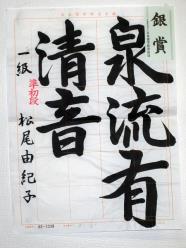 銀賞
泉流有
清音
準初段
一級 松尾由紀子